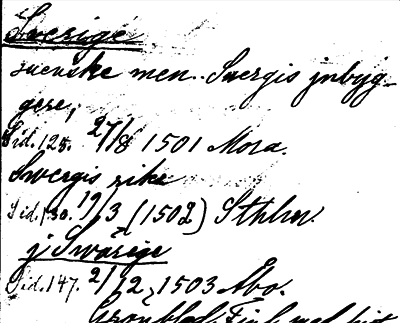 Sverige
svenske men.. Svergis jnbyg-
gere;
Sid. 125. 27/8 1501 Mora.
Swergis rike
Sid. 130. 19/3 (1502) Sthlm.
j Swärige
Sid. 147. 2/12 1503 Åbo.
Grönblad, Finl. med.tid